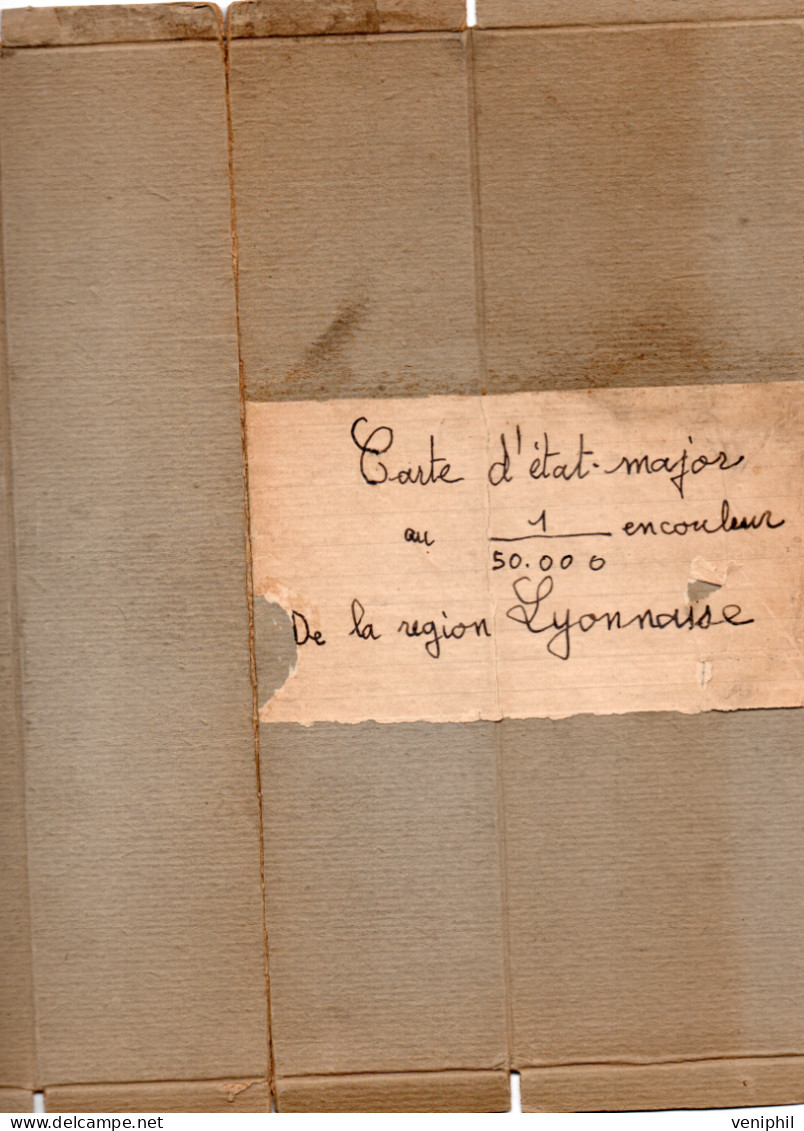 Carte d'état-major
au 1/50.000 encouleur
De la region Lyonnaise
veniphil